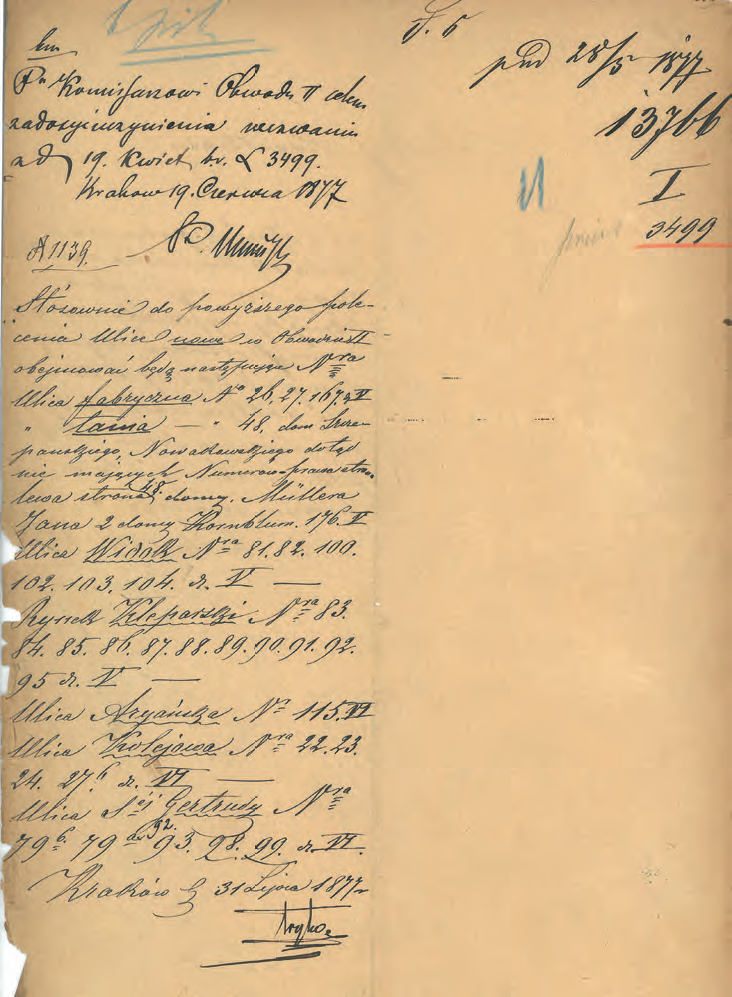 Pnu Komisarzowi Obwodu II celem
zadosyćuczynienia wezwaniu
z d 19. Kwiet. b.r. L 3499.
Kraków 19. Czerwca 1877
N 1139.
Stosownie do powyższego pole-
cenia Ulice nowe w Obwodzie II
obejmować będą następujące Nra
Ulica fabryczna No 26. 27. 167. d. V
" tania — " 48. dom Szcze-
pańskiego, Nowakowskiego dotąd
nie mających Numerów prawa stro-
lewa strona 48. domy. Müllera
Jana 2 domy Kornblum. 176. V
Ulica Widok Nra 81. 82. 100.
102. 103. 104. d. V —
Rynek Kleparski Nra 83.
84. 85. 86. 87. 88. 89. 90. 91. 92.
95 d. V —
Ulica Aryańska Nr 115. VI
Ulica Kolejowa Nra 22. 23.
24. 27 d. VI —
Ulica Sej Gertrudy Nra
79 b. 79 a 92. 93. 98. 99. d. VI.
Kraków d 31 Lipca 1877
pud 28/5 1877
13766
I
3499